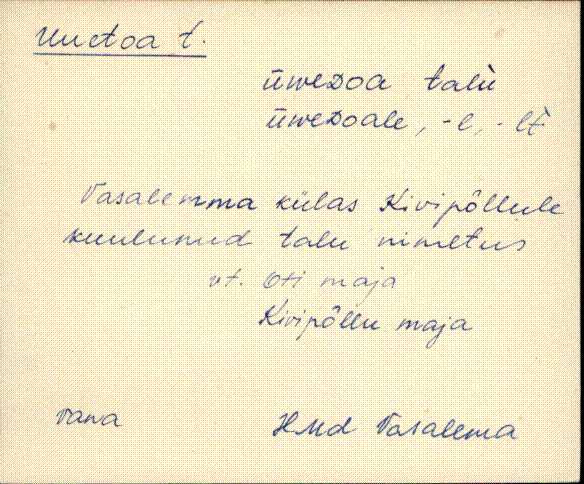 Uuetoa t.
üweDoa talù
üweDoale, -l, -lt
Vasalemma külas Kivipõllule
kuulunud talu nimetus
vt. Oti maja
Kivipõllu maja
vana
HMd Vasalema